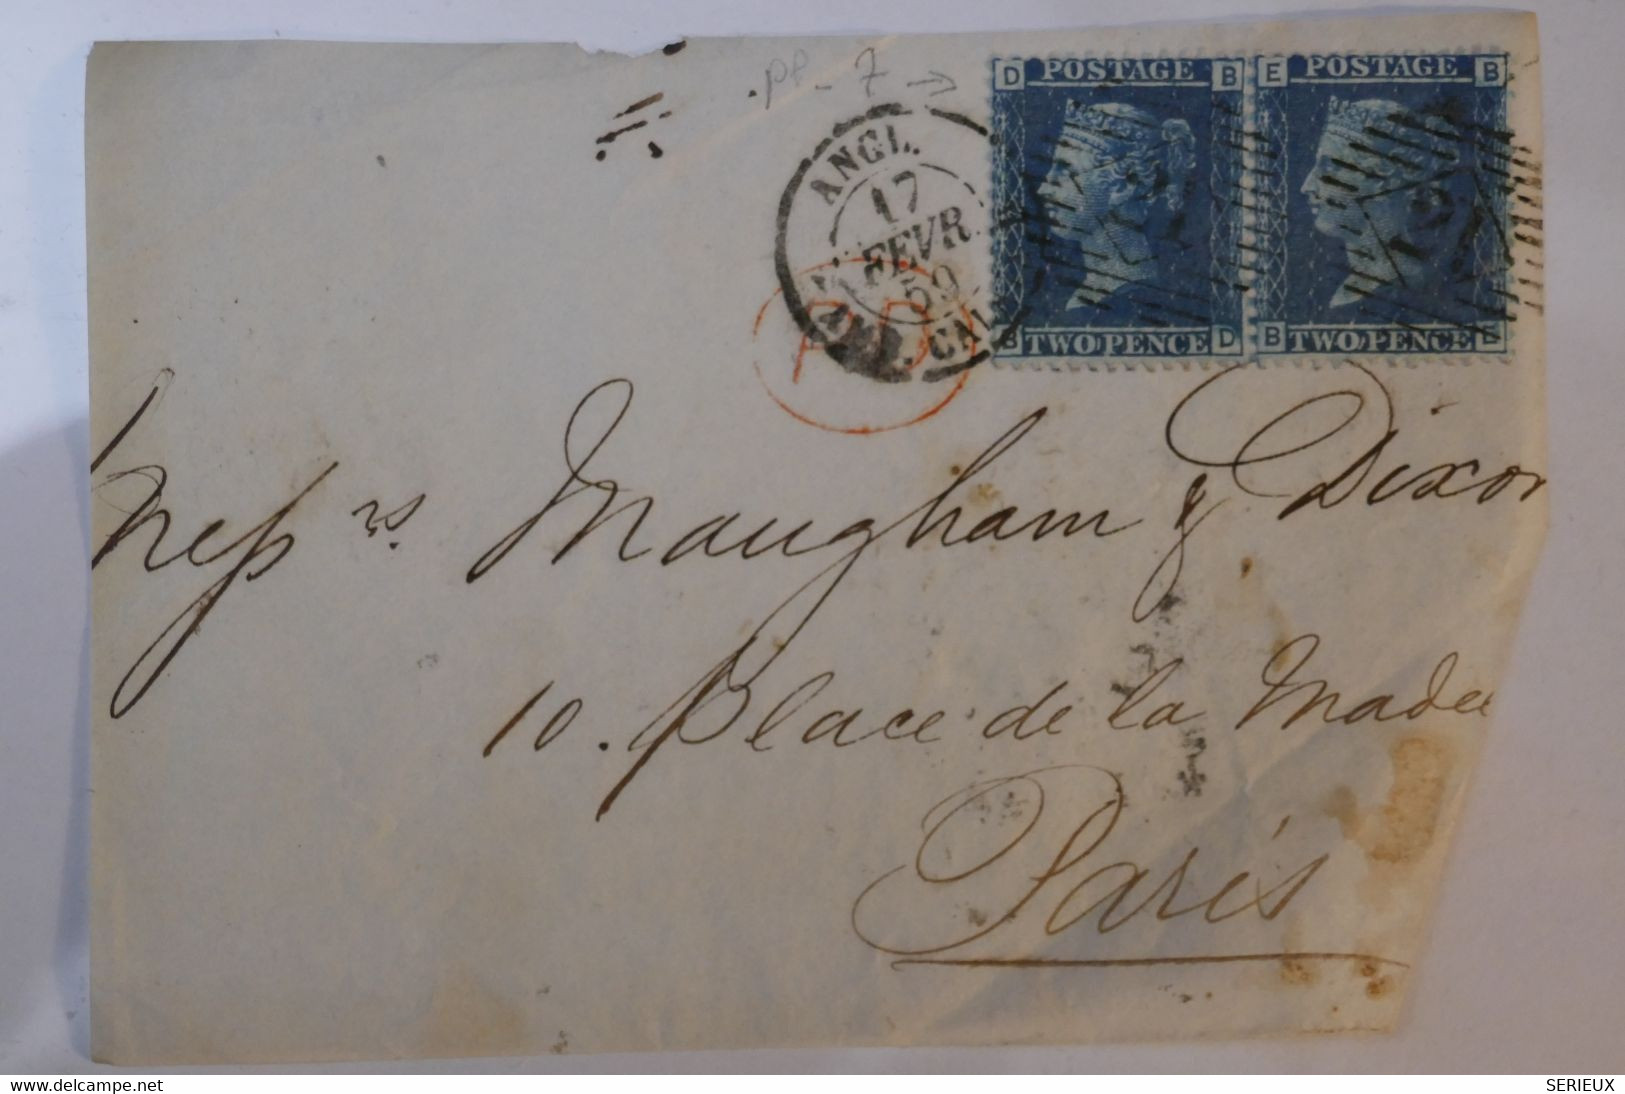 pp - 7 →
D POSTAGE B
E POSTAGE B
B TWO PENCE D
B TWO PENCE E
ANGL.
17
FEVR.
59
AMB. CAL
PD
Messrs Maugham & Dixon
10. Place de la Madel
Paris
delcampe.net
SERIEUX